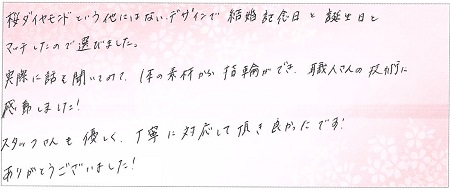 桜ダイヤモンドという他にはないデザインで結婚記念日と誕生日と
マッチしたので選びました。
実際に話を聞いてみて、1本の素材から指輪ができ、職人さんの技術に
感動しました!
スタッフさんも優しく、丁寧に対応して頂き良かったです!
ありがとうございました!